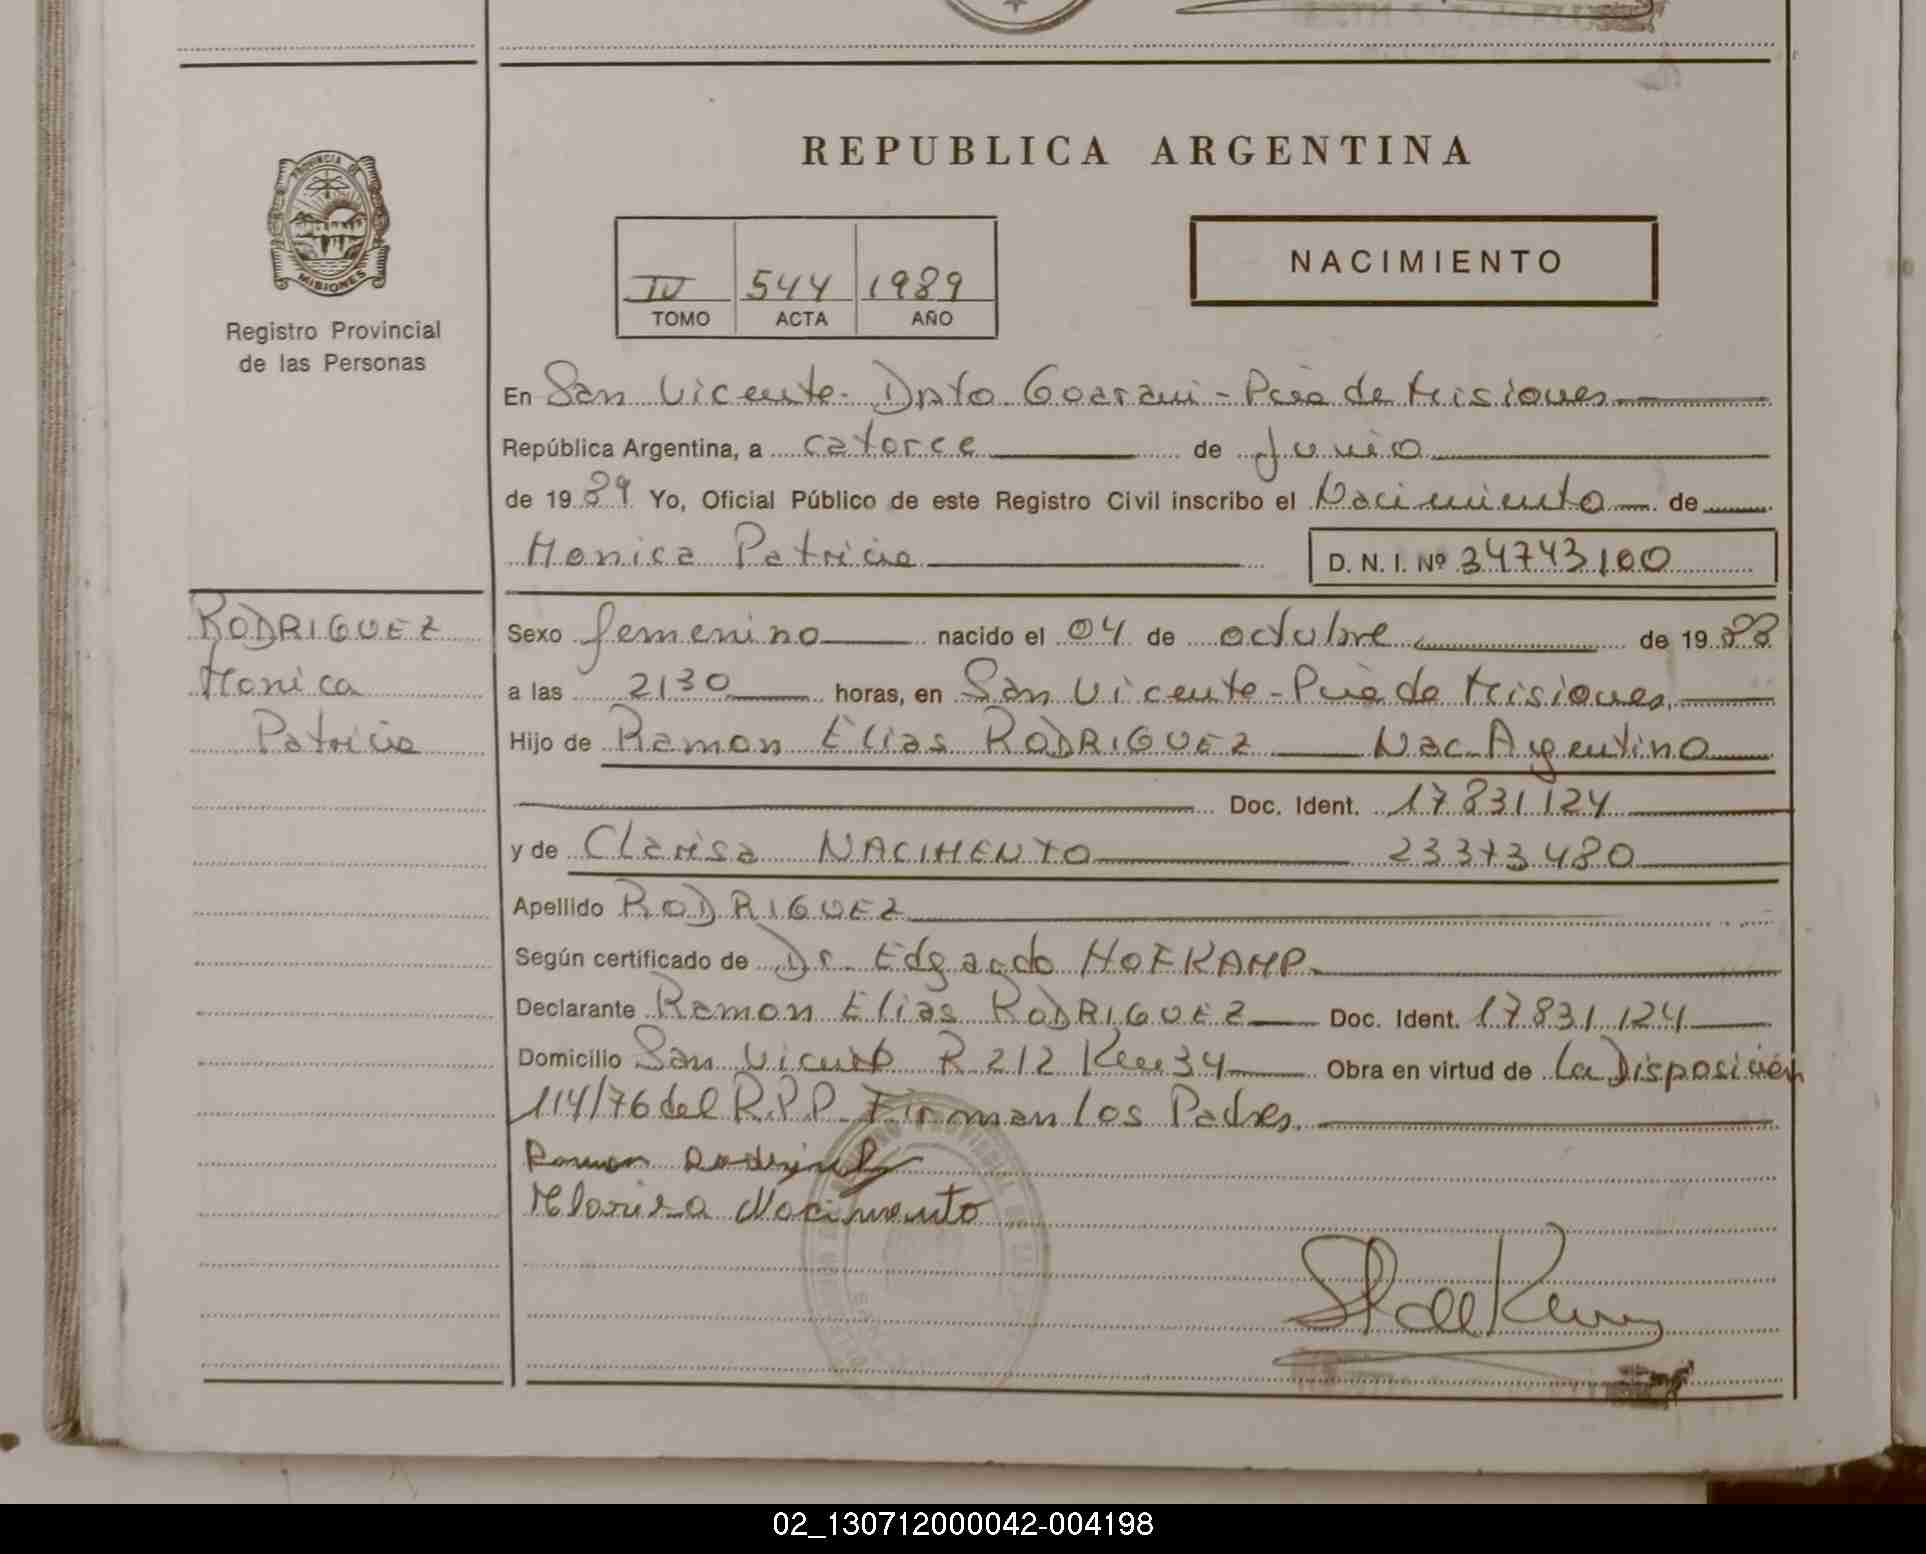 REPUBLICA ARGENTINA
PROVINCIA DE
MISIONES
Registro Provincial
de las Personas
IV 544 1989
TOMO ACTA AÑO
NACIMIENTO
En San Vicente - Dpto Guarani - Pcia de Misiones
República Argentina, a catorce de Junio
de 1989 Yo, Oficial Público de este Registro Civil inscribo el Nacimiento de
Monica Patricia D. N. I. Nº 34743100
RODRIGUEZ
Monica
Patricia
Sexo femenino nacido el 04 de octubre de 1988
a las 2130 horas, en San Vicente - Pcia de Misiones.
Hijo de Ramon Elias RODRIGUEZ Nac. Argentino
Doc. Ident. 17831124
y de Clarisa NACIMENTO 23373480
Apellido RODRIGUEZ
Según certificado de Dr. Edgardo HOFKAMP
Declarante Ramon Elias RODRIGUEZ Doc. Ident. 17831124
Domicilio San Vicente R 212 Km 34 Obra en virtud de la Disposición
114/76 del R.P.P. Firman los Padres.
Ramon Rodriguez
Clarisa Nacimento
02_130712000042-004198